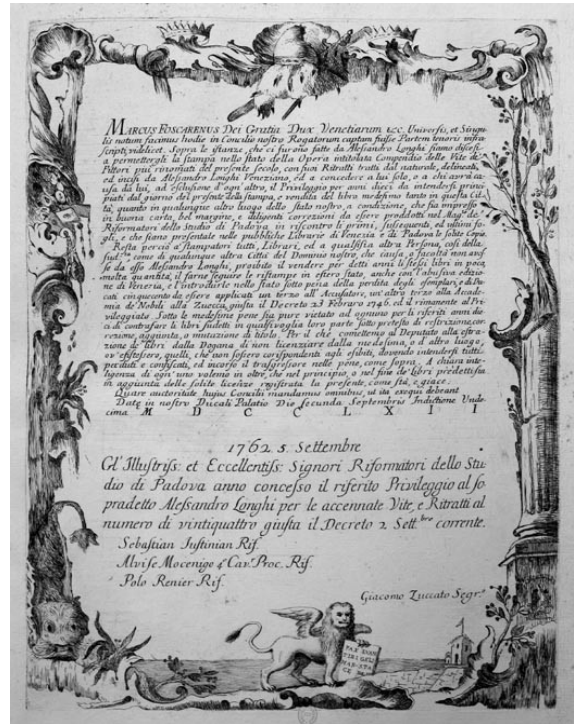 MARCUS FOSCARENUS Dei Gratia Dux Venetiarum &c. Universis, et Singu
lis notum facimus hodie in Concilio nostro Rogatorum captam fuisse Partem tenoris infra
scripti videlicet. Sopra le istanze, che ci furono fatte da Alessandro Longhi siamo discesi
a permettergli la stampa nello stato della Opera intitolata Compendio delle Vite de'
Pittori più rinomati del presente secolo, con suoi Ritratti tratti dal naturale, delineati,
ed incisi da Alessandro Longhi Veneziano, ed a concedere a lui solo, o a chi avrà ca
usa da lui, ad esclusione d'ogni altro, il Privileggio per anni dieci da intendersi princi
piati dal giorno del presente della stampa, e vendita del libro medesimo tanto in questa Cit
tà, quanto in qualunque altro luogo dello stato nostro, a condizione, che sia impresso
in buona carta, bel margine, e diligenti correzioni da essere prodotti nel Mag.to de'
Riformatori dello Studio di Padova in riscontro li primi, susseguenti, ed ultimi fo
gli, e che siano presentate nelle pubbliche Librarie di Venezia, e di Padova le solite Copie.
Resta perciò a' stampatori tutti, Librari, ed a qualsisia altra Persona, così della
sud.ta come di qualunque altra Città del Dominio nostro, che causa, o facoltà non aves
se da esso Alessandro Longhi, proibito il vendere per detti anni li stessi libri in poca,
molta quantità, il farne seguire le ristampe in estero stato, anche con l'abusiva edizio
ne di Venezia, e l'introdurle nello stato sotto pena della perdita degli esemplari, e di Du
cati cinquecento da essere applicati un terzo all'Accusatore, un'altro terzo alla Acade
mia de' Nobili alla Zuecca, giusta il Decreto 23 Febraro 1746. ed il rimanente al Pri
vileggiato. Sotto le medesime pene sia pure vietato ad ognuno per li riferiti anni die
ci di contrafare li libri sudetti in qualsivoglia loro parte sotto pretesto di restrizione, cor
rezione, aggiunta, o mutazione di titolo. Per il chè comettemo al Deputato alla estra
zione de' libri dalla Dogana di non licenziare dalla medesima, o d'altro luogo,
ov'esistessero, quelli, che non fossero corispondenti agli esibiti, dovendo intendersi tutti
perduti e confiscati, ed incorso il trasgressore nelle pene, come sopra. A chiara inte
ligenza di ogn'uno volemo in oltre, che nel principio, o nel fine de' libri predetti sia
in aggiunta delle solite licenze registrata la presente, come stà, e giace.
Quare auctoritate hujus Concilii mandamus omnibus, ut ita exequi debeant
Date in nostro Ducali Palatio Die Secunda Septembris Indictione Unde
cima M D C C L X I I
1762 5. Settembre
Gl'Illustriss: et Eccellentiss: Signori Riformatori dello Stu
dio di Padova anno concesso il riferito Privileggio al so
pradetto Alessandro Longhi per le accennate Vite, e Ritratti al
numero di vintiquattro giusta il Decreto 2. Sett.bre corrente.
Sebastian Iustinian Rif.
Alvise Mocenigo 4.° Cav.r Proc. Rif.
Polo Renier Rif.
Giacomo Zuccato Segr.°
PAX
TIBI
MAR
CE